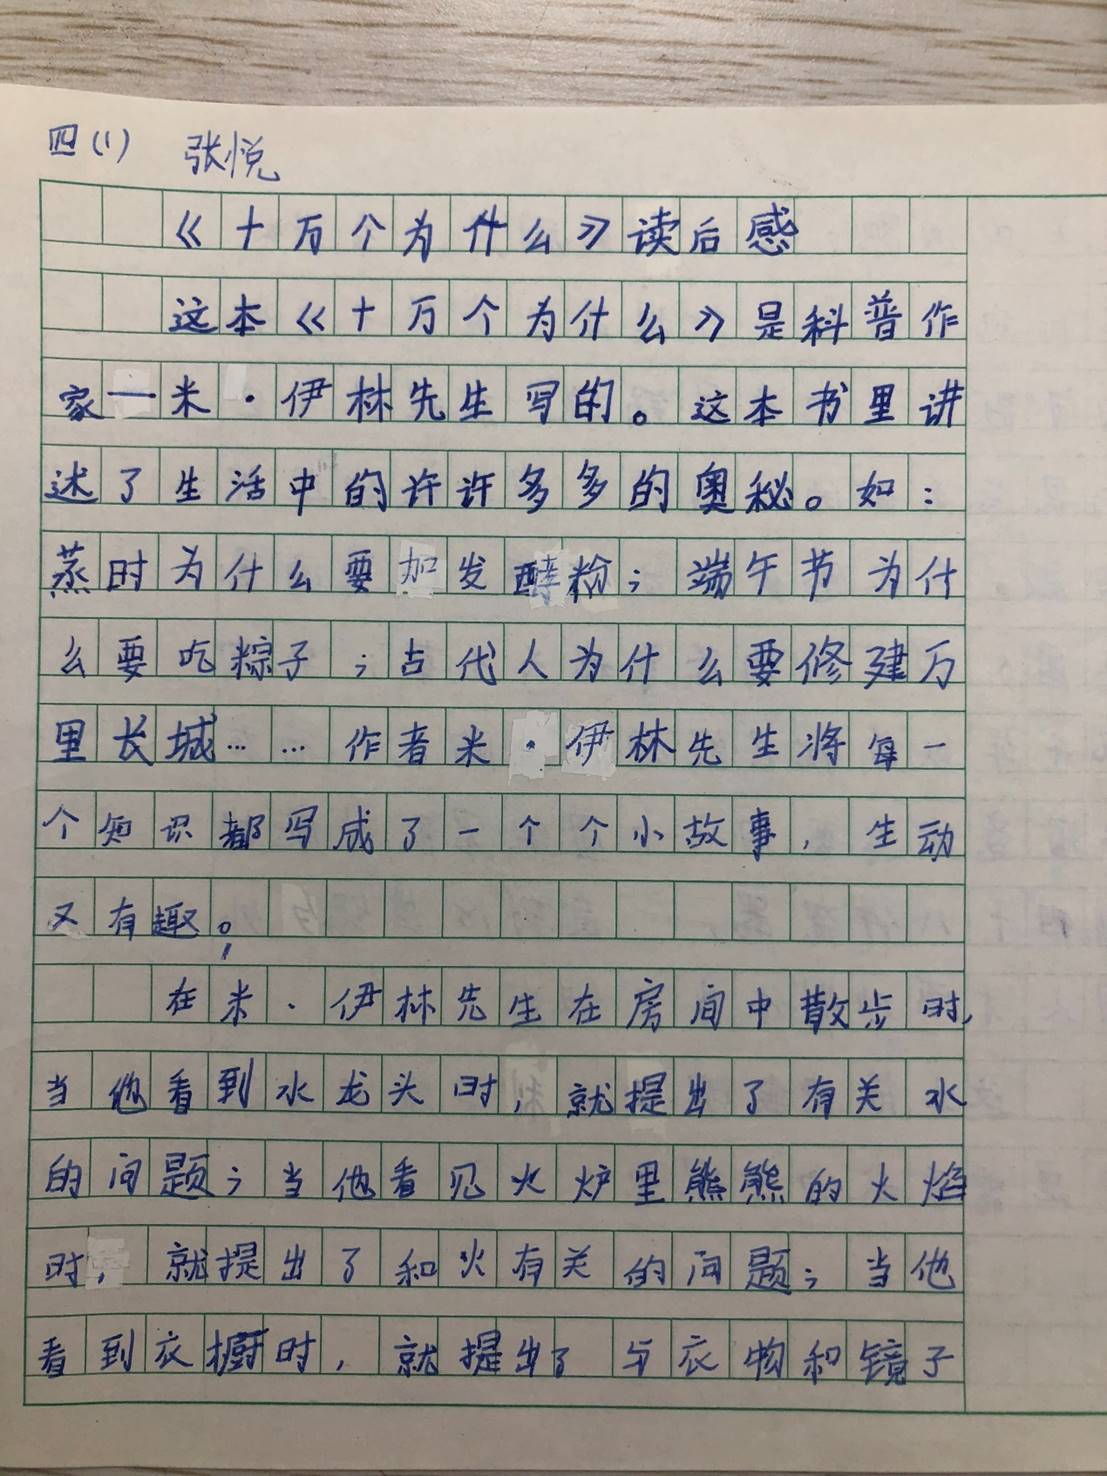 四(1) 张悦
《十万个为什么》读后感
这本《十万个为什么》是科普作
家一米·伊林先生写的。这本书里讲
述了生活中的许许多多的奥秘。如：
蒸时为什么要加发酵粉；端午节为什
么要吃粽子；古代人为什么要修建万
里长城……作者米·伊林先生将每一
个知识都写成了一个个小故事，生动
又有趣。
在米·伊林先生在房间中散步时，
当他看到水龙头时，就提出了有关水
的问题；当他看见火炉里熊熊的火焰
时，就提出了和火有关的问题；当他
看到衣橱时，就提出了与衣物和镜子